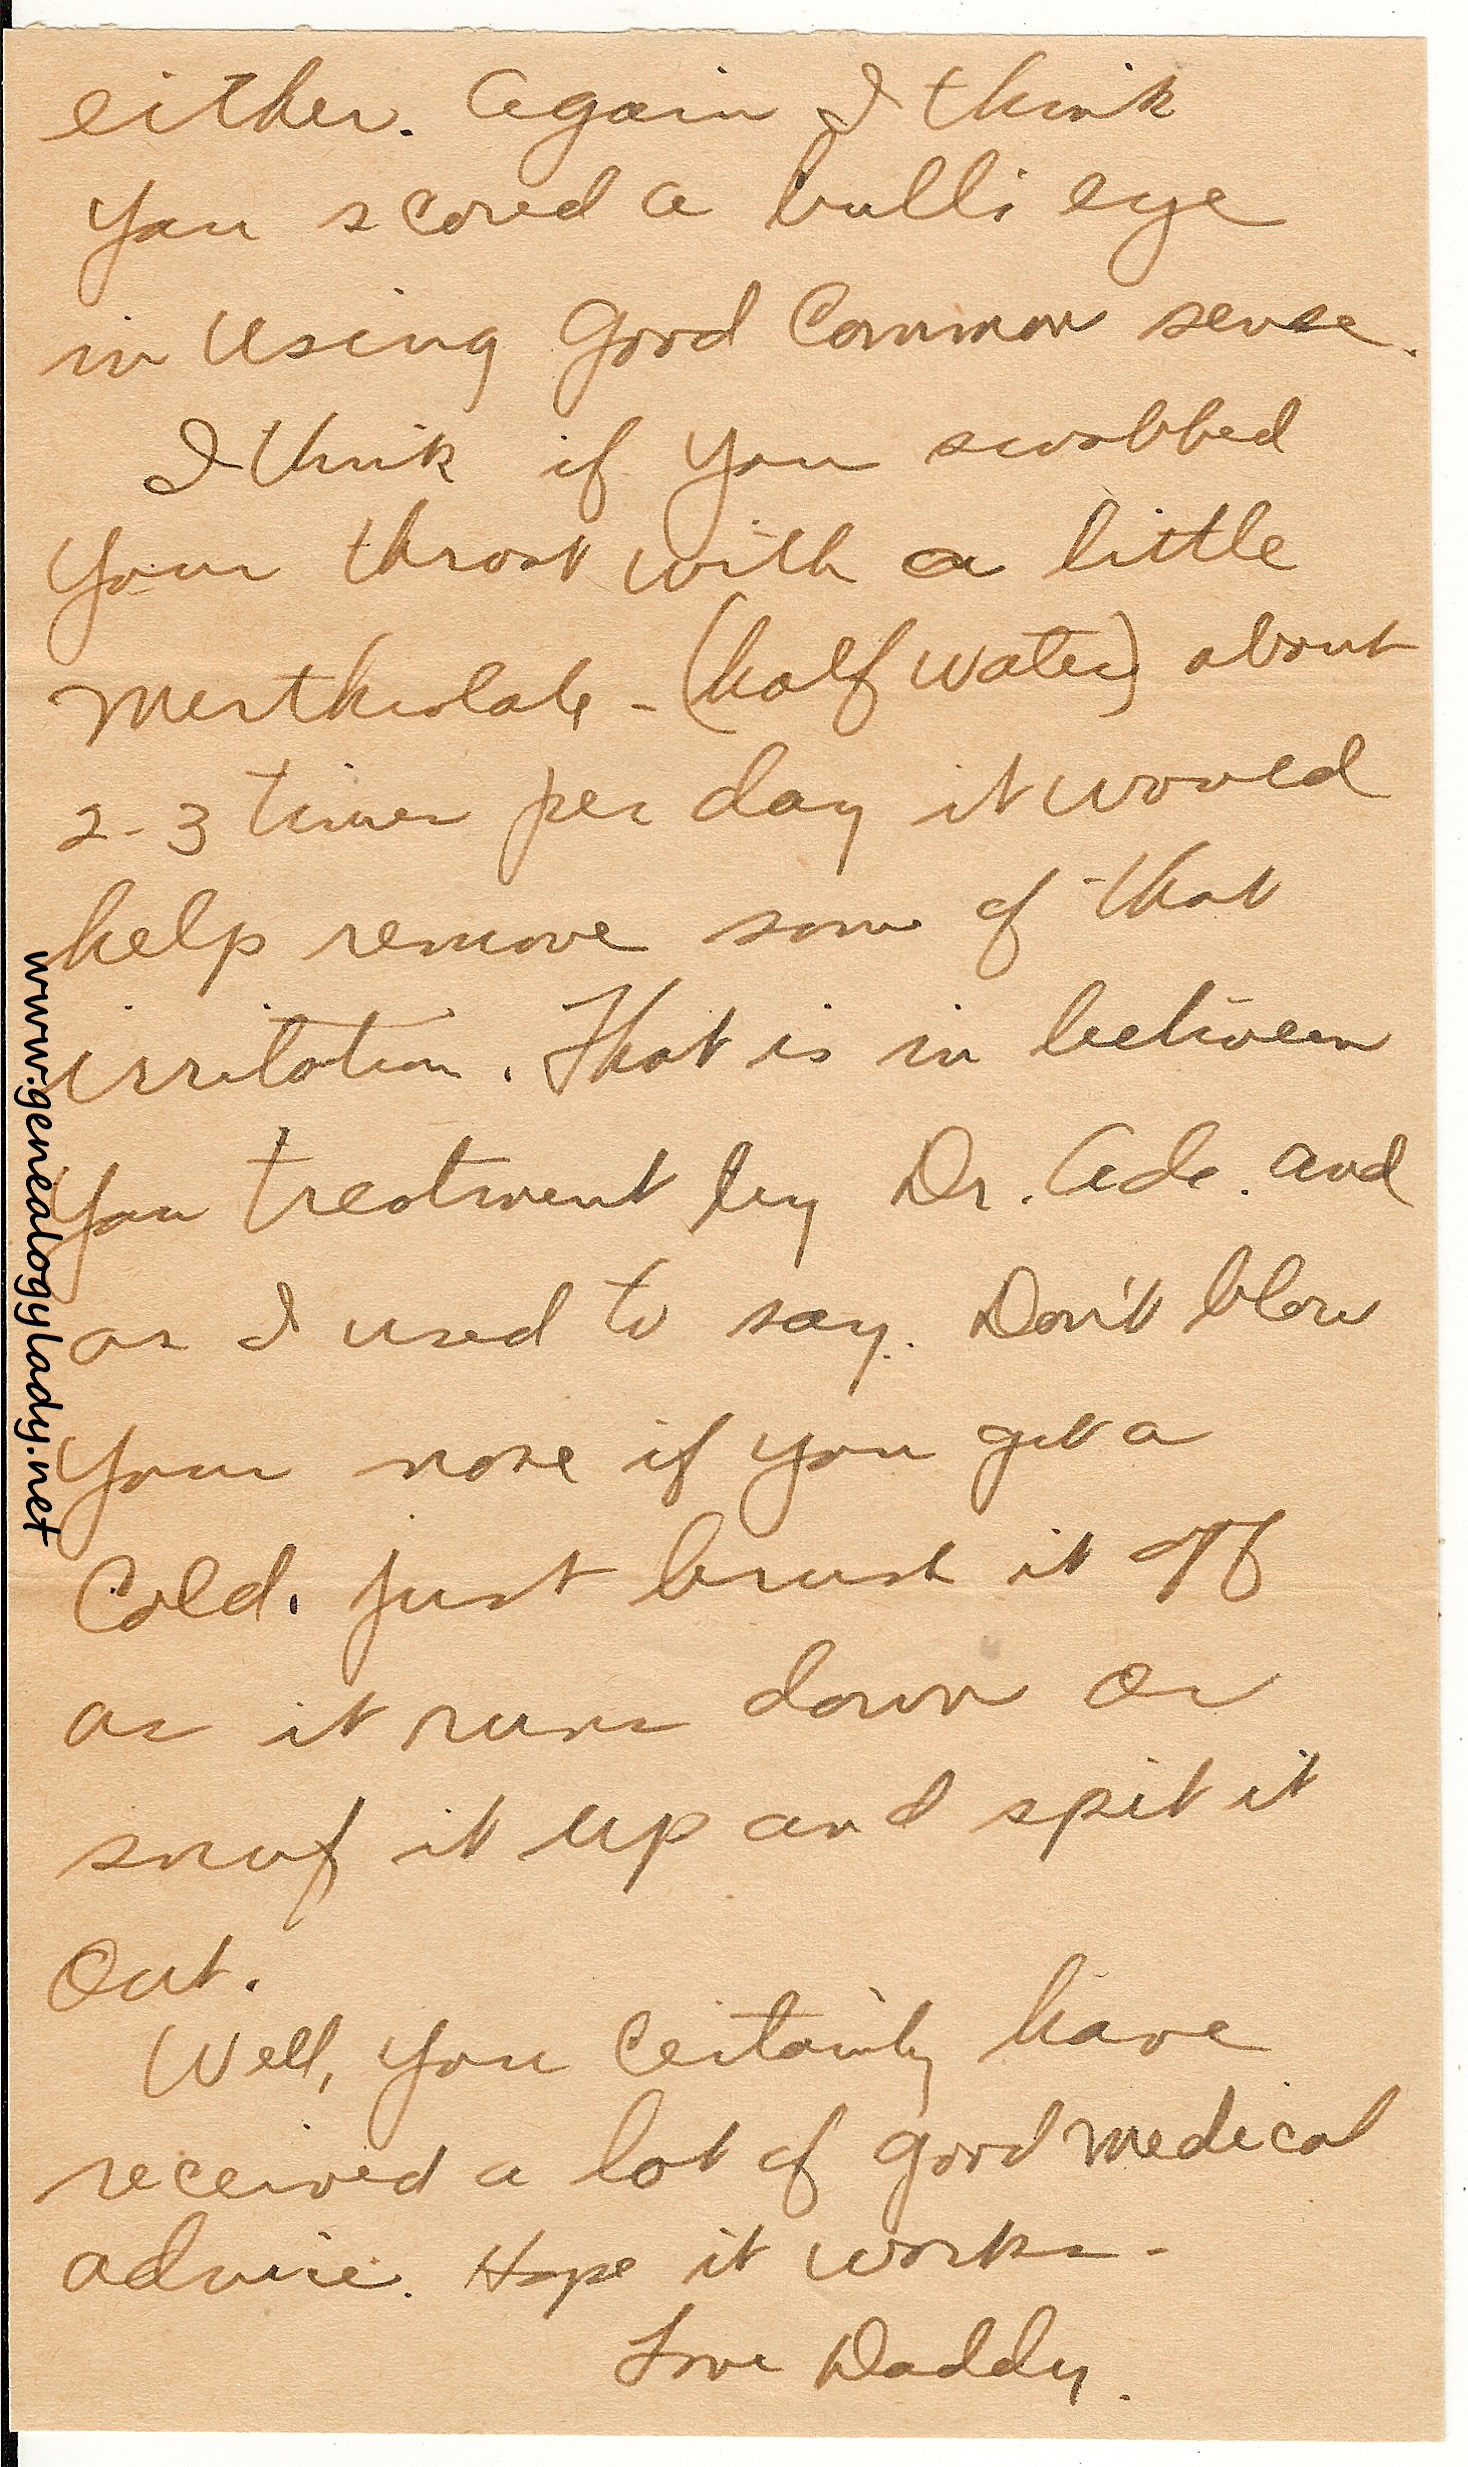 either. Again I think
you scored a bulls eye
in using good common sense.
I think if you swabbed
your throat with a little
Merthiolate - (half water) about
2-3 times per day it would
help remove some of that
irritation. That is in between
you treatment by Dr. Ade. and
as I used to say. Don't blow
your nose if you get a
Cold. Just brush it off
as it runs down or
snuf it up and spit it
out.
Well, you certainly have
received a lot of good medical
advice. Hope it works-
Love Daddy.
www.genealogylady.net